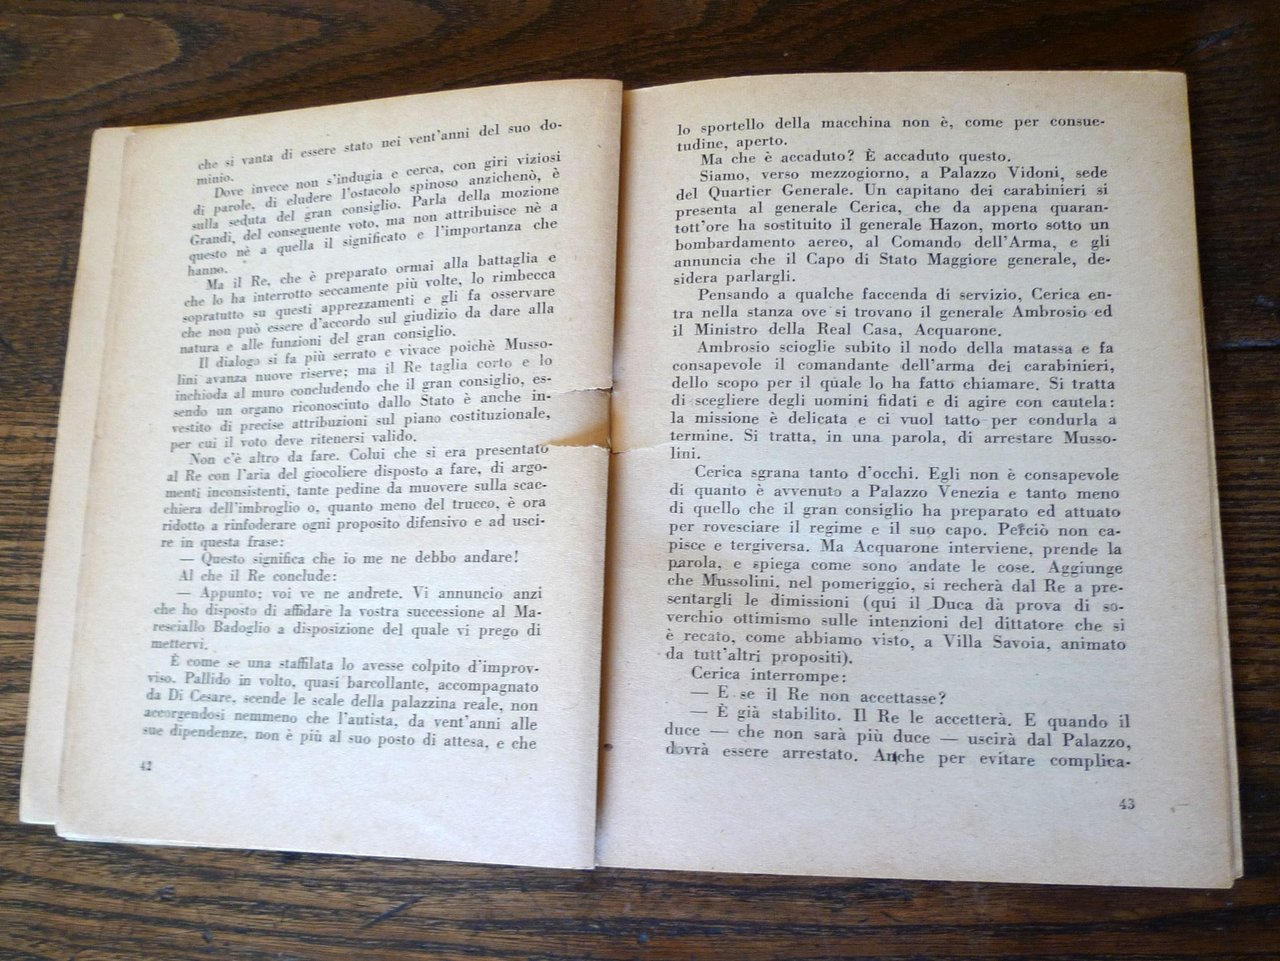 che si vanta di essere stato nei vent'anni del suo do-
minio.
Dove invece non s'indugia e cerca, con giri viziosi
di parole, di eludere l'ostacolo spinoso anzichenò, è
sulla seduta del gran consiglio. Parla della mozione
Grandi, del conseguente voto, ma non attribuisce nè a
questo nè a quella il significato e l'importanza che
hanno.
Ma il Re, che è preparato ormai alla battaglia e
che lo ha interrotto seccamente più volte, lo rimbecca
sopratutto su questi apprezzamenti e gli fa osservare
che non può essere d'accordo sul giudizio da dare alla
natura e alle funzioni del gran consiglio.
Il dialogo si fa più serrato e vivace poichè Musso-
lini avanza nuove riserve; ma il Re taglia corto e lo
inchioda al muro concludendo che il gran consiglio, es-
sendo un organo riconosciuto dallo Stato è anche in-
vestito di precise attribuzioni sul piano costituzionale,
per cui il voto deve ritenersi valido.
Non c'è altro da fare. Colui che si era presentato
al Re con l'aria del giocoliere disposto a fare, di argo-
menti inconsistenti, tante pedine da muovere sulla scac-
chiera dell'imbroglio o, quanto meno del trucco, è ora
ridotto a rinfoderare ogni proposito difensivo e ad usci-
re in questa frase:
— Questo significa che io me ne debbo andare!
Al che il Re conclude:
— Appunto; voi ve ne andrete. Vi annuncio anzi
che ho disposto di affidare la vostra successione al Ma-
resciallo Badoglio a disposizione del quale vi prego di
mettervi.
È come se una staffilata lo avesse colpito d'improv-
viso. Pallido in volto, quasi barcollante, accompagnato
da Di Cesare, scende le scale della palazzina reale, non
accorgendosi nemmeno che l'autista, da vent'anni alle
sue dipendenze, non è più al suo posto di attesa, e che
42
lo sportello della macchina non è, come per consue-
tudine, aperto.
Ma che è accaduto? È accaduto questo.
Siamo, verso mezzogiorno, a Palazzo Vidoni, sede
del Quartier Generale. Un capitano dei carabinieri si
presenta al generale Cerica, che da appena quaran-
tott'ore ha sostituito il generale Hazon, morto sotto un
bombardamento aereo, al Comando dell'Arma, e gli
annuncia che il Capo di Stato Maggiore generale, de-
sidera parlargli.
Pensando a qualche faccenda di servizio, Cerica en-
tra nella stanza ove si trovano il generale Ambrosio ed
il Ministro della Real Casa, Acquarone.
Ambrosio scioglie subito il nodo della matassa e fa
consapevole il comandante dell'arma dei carabinieri,
dello scopo per il quale lo ha fatto chiamare. Si tratta
di scegliere degli uomini fidati e di agire con cautela:
la missione è delicata e ci vuol tatto per condurla a
termine. Si tratta, in una parola, di arrestare Musso-
lini.
Cerica sgrana tanto d'occhi. Egli non è consapevole
di quanto è avvenuto a Palazzo Venezia e tanto meno
di quello che il gran consiglio ha preparato ed attuato
per rovesciare il regime e il suo capo. Perciò non ca-
pisce e tergiversa. Ma Acquarone interviene, prende la
parola, e spiega come sono andate le cose. Aggiunge
che Mussolini, nel pomeriggio, si recherà dal Re a pre-
sentargli le dimissioni (qui il Duca dà prova di so-
verchio ottimismo sulle intenzioni del dittatore che si
è recato, come abbiamo visto, a Villa Savoia, animato
da tutt'altri propositi).
Cerica interrompe:
— E se il Re non accettasse?
— È già stabilito. Il Re le accetterà. E quando il
duce — che non sarà più duce — uscirà dal Palazzo,
dovrà essere arrestato. Anche per evitare complica-
43